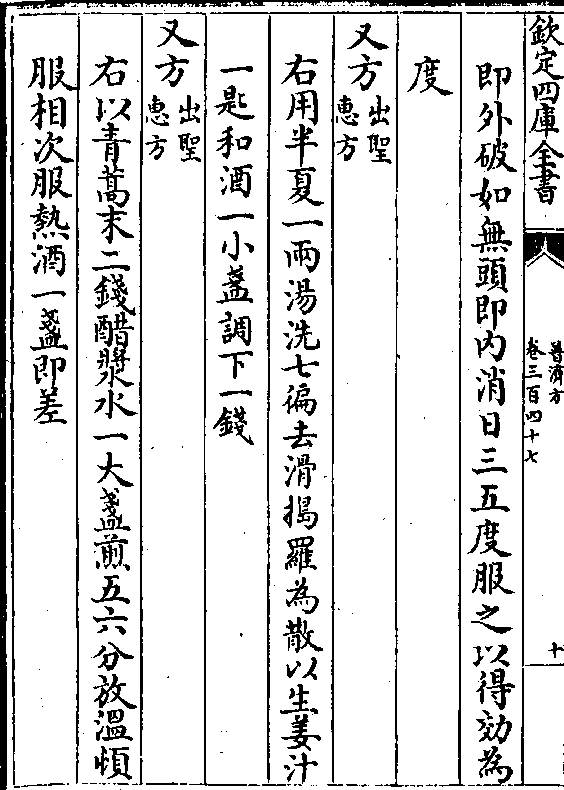 欽定四庫全書
普濟方
卷三百四十七
十
即外破如無頭即內消日三五度服之以得効為
度
又方出聖
惠方
右用半夏一兩湯洗七徧去滑搗羅為散以生姜汁
一匙和酒一小盞調下一錢
又方出聖
惠方
右以青蒿末二錢醋漿水一大盞煎五六分放溫頓
服相次服熱酒一盞即差